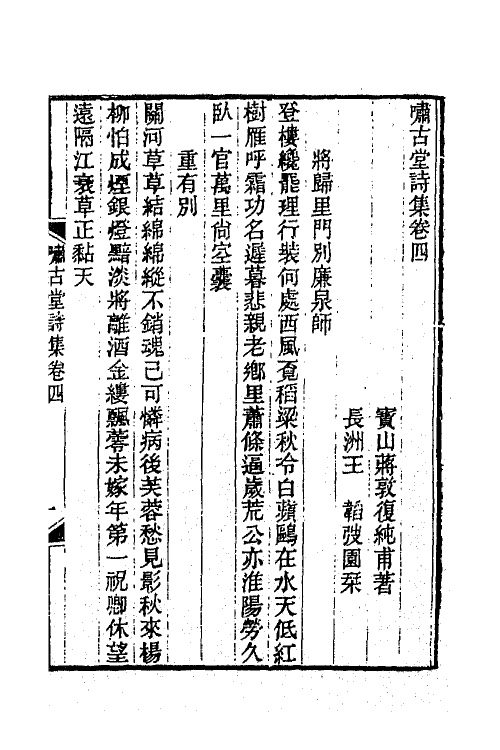 嘯古堂詩集卷四
寳山蔣敦復純甫著
長洲王　韜弢園栞
將歸里門別廉泉師
登樓纔罷理行裝何處西風覓稻粱秋令白蘋鷗在水天低紅
樹雁呼霜功名遲暮悲親老鄉里蕭條逼歲荒公亦淮陽勞久
臥一官萬里尙空囊
重有別
關河草草結綿綿縱不銷魂已可憐病後芙蓉愁見影秋來楊
柳怕成煙銀燈黯淡將離酒金縷飄零未嫁年第一祝卿休望
遠隔江衰草正黏天
嘯古堂詩集卷四
一